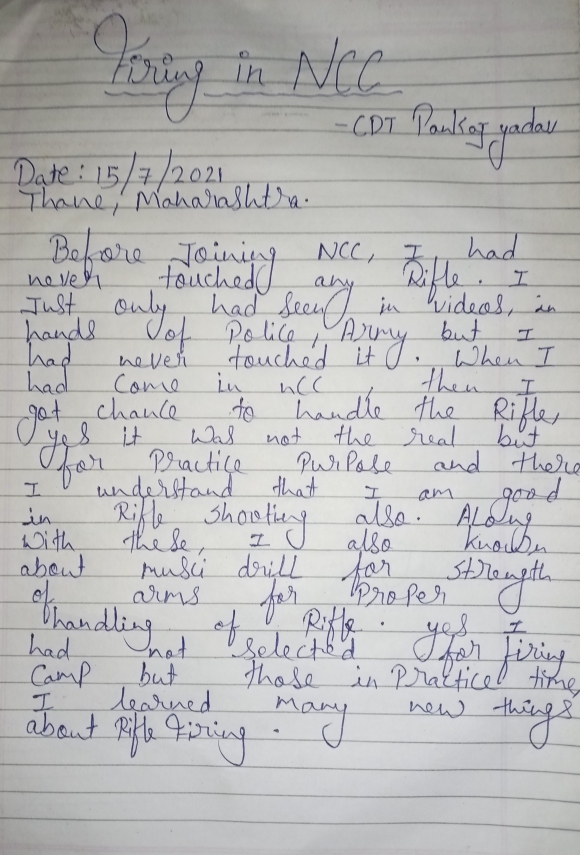 Firing in NCC
- CDT Pankaj yadav
Date: 15/7/2021
Thane, Maharashtra.
Before Joining NCC, I had
never touched any Rifle. I
Just only had seen in videos, in
hands of Police, Army but I
had never touched it. When I
had come in ncc, then I
got chance to handle the Rifle,
yes it was not the real but
for Practice PurPose and there
I understand that I am good
in Rifle shooting also. ALong
with these, I also known
about musci drill for strength
of arms for ProPer
handling of Rifle. yes I
had not selected for firing
camp but those in Practice time,
I learned many new things
about Rifle Firing.